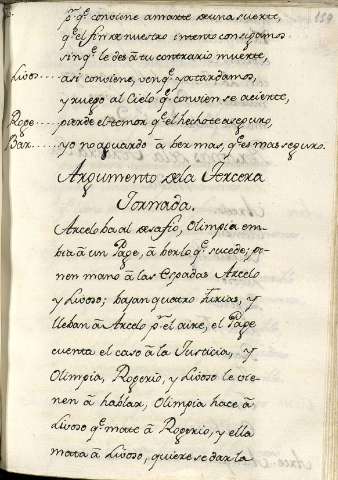 159
pr. q.e conviene amarte de una suerte,
q.e el fin de nuestro intento consigamos
sin q.e le des à tu contrario muerte,
Livoso.... asi conviene, ven q.e ya tardamos,
y ruego al Cielo q.e convien se acierte,
Roge.... pierde el temor q.e el hecho te aseguro,
Bar.... yo no aguardo à ber mas, q.e es mas seguro.
Argumento de la Tercera
Jornada.
Arcelo ba al desafio, Olimpia em-
bia à un Page, à berlo q.e sucede; po-
nen mano à las Espadas Arcelo
y Livoso; bajan quatro furias, y
lleban à Arcelo pr. el aire, el Page
cuenta el caso à la Justicia, y
Olimpia, Rogerio, y Livoso le vie-
nen à hablar, Olimpia hace à
Livoso q.e mate à Rogerio, y ella
mata à Livoso, quiere se dar la